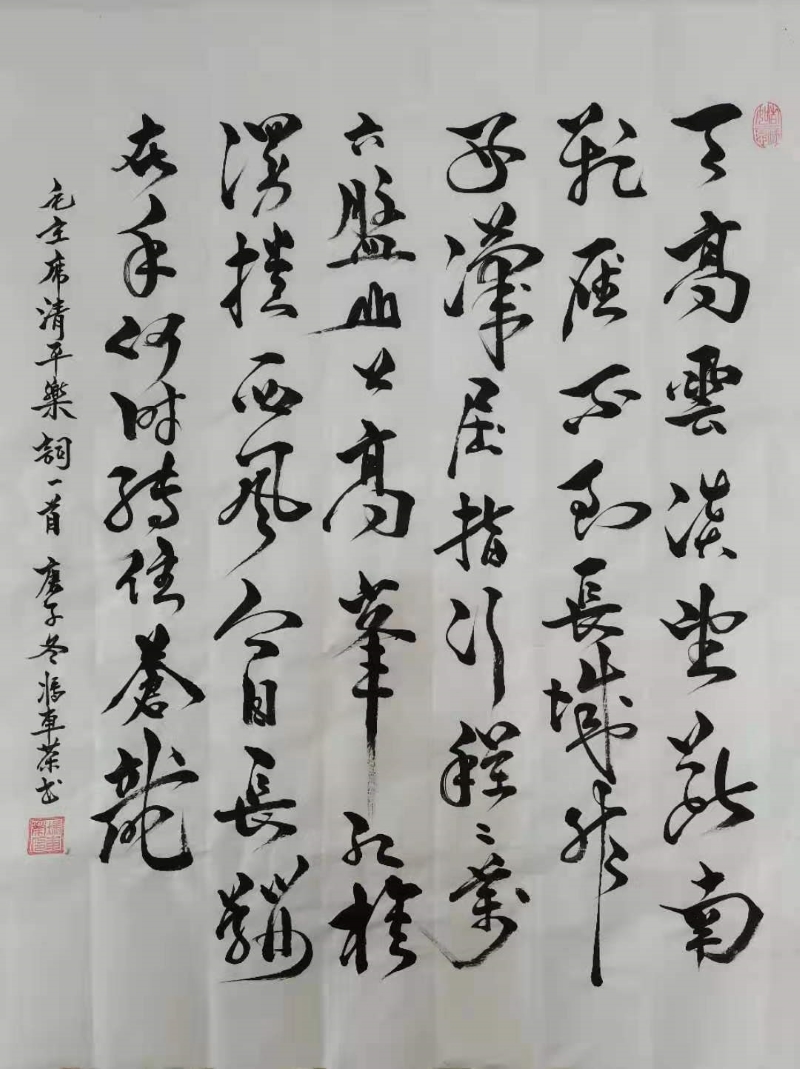 天高雲淡望斷南
飛雁不到長城非
好漢屈指行程二萬
六盤山上高峯紅旗
漫捲西風今日長纓
在手何时縛住蒼龍
毛主席清平樂詞一首 庚子冬 书